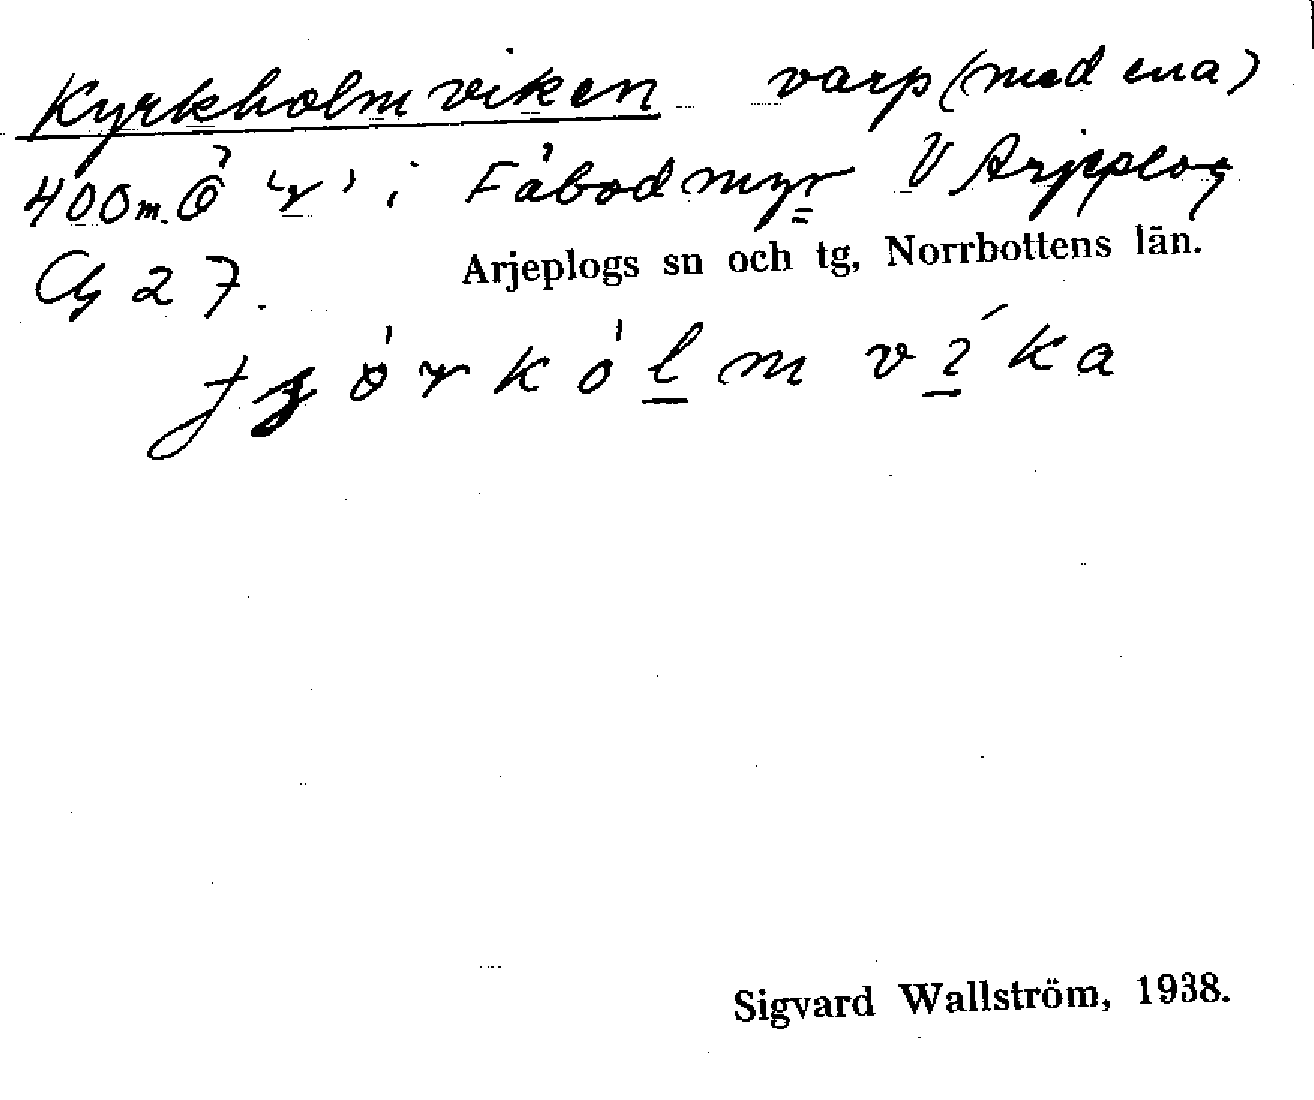 Kyrkholmviken varp (med ena)
400 m. Ö 'r' i Fäbodmyr V Arjeplog
27.
Arjeplogs sn och tg, Norrbottens län.
Sigvard Wallström, 1938.